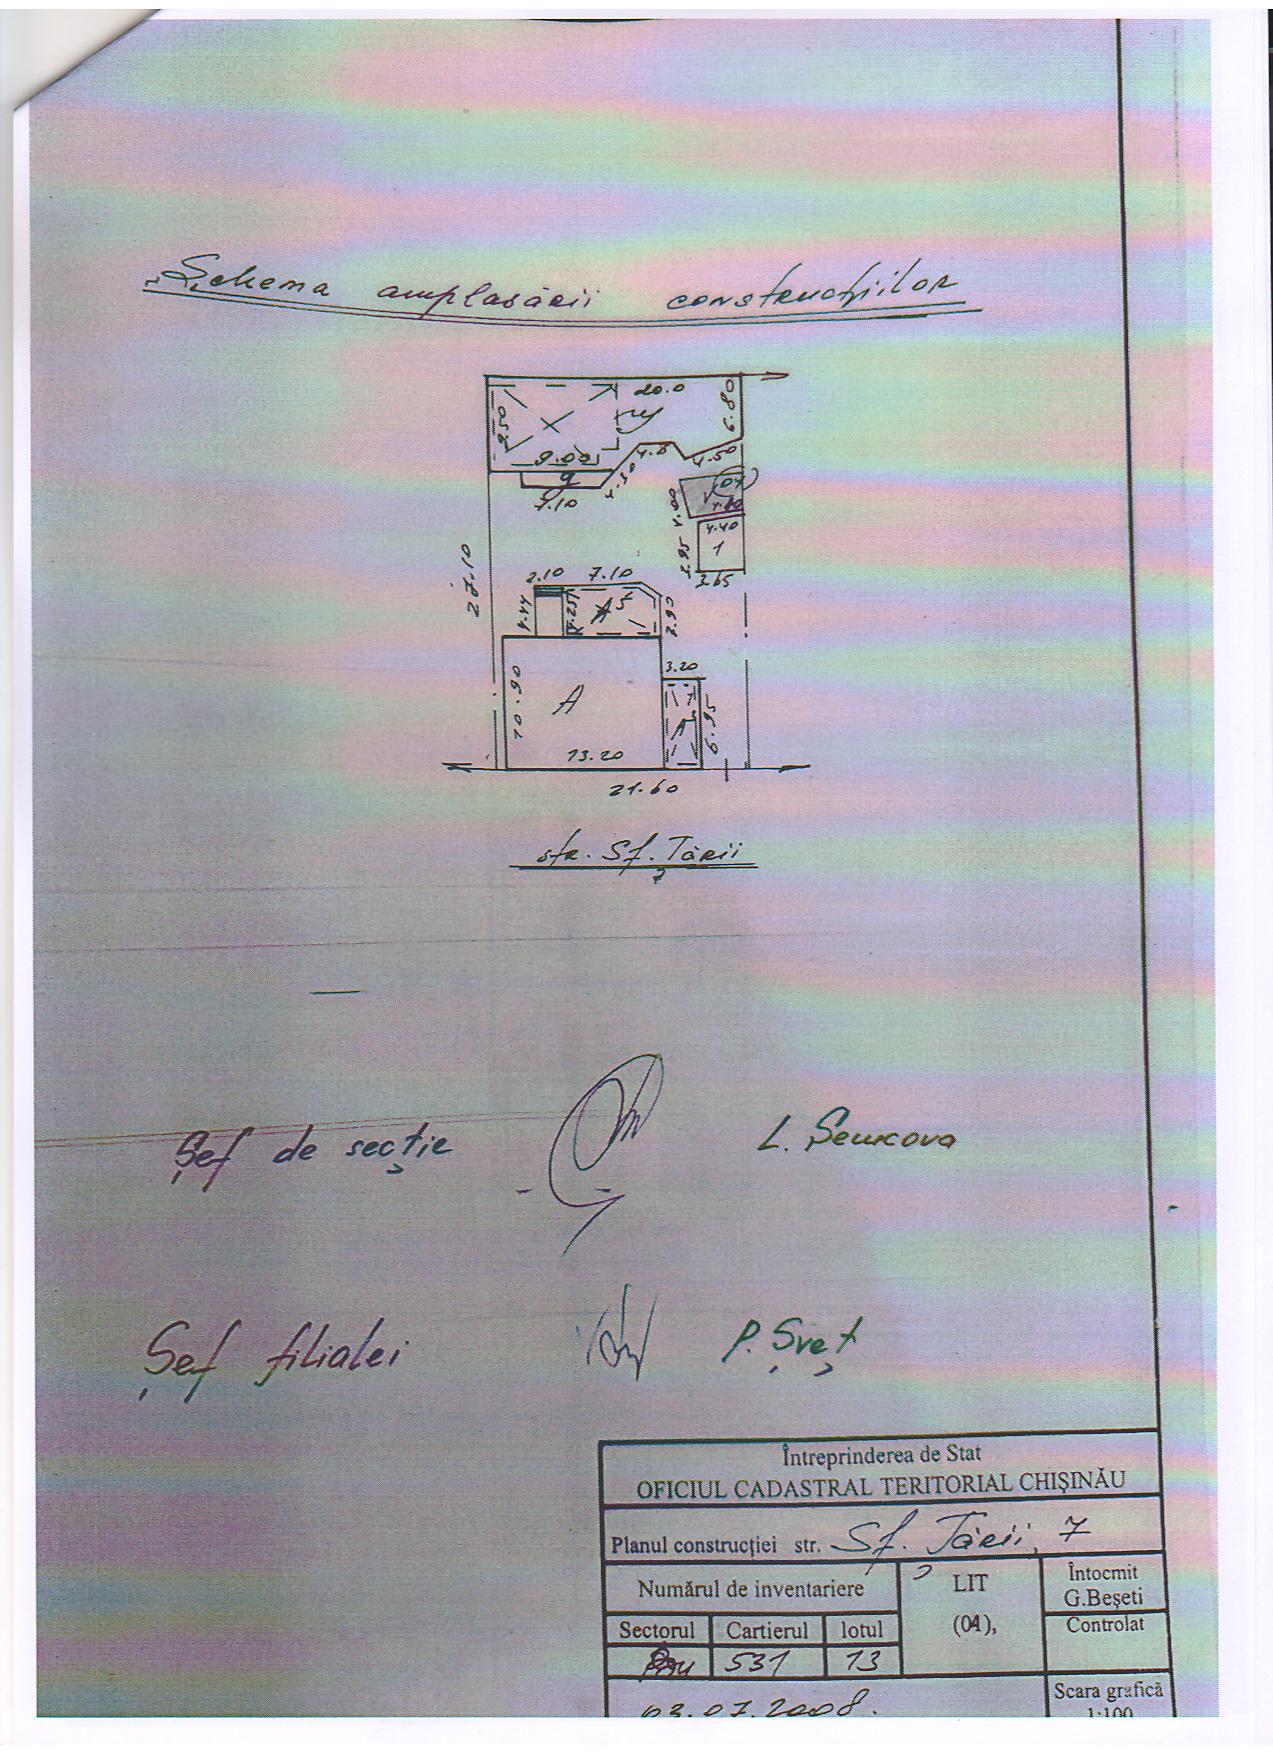 „Schema amplasării construcțiilor
20.0
9.50
6.80
9.00
4.6
4.50
4.30
9
7.10
04
4.00
4.40
1
3.95
3.65
27.10
2.10 7.10
4.44
4.25
2.90
3.20
10.90
A
6.95
13.20
21.60
str. Sf. Țării
Șef de secție L. Semcova
Șef filialei P. Șveț
Întreprinderea de Stat
OFICIUL CADASTRAL TERITORIAL CHIȘINĂU
Planul construcției str. Sf. Țării, 7
Numărul de inventariere
LIT
(04),
Întocmit
G.Beșeti
Controlat
Sectorul Cartierul lotul
531 13
03.07.2008.
Scara grafică
1:100